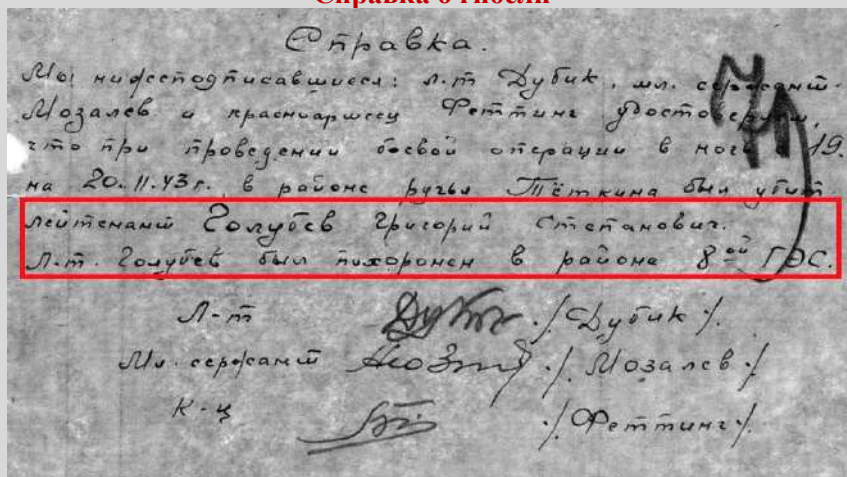 Справка о гибели
Справка.
Мы нижеподписавшиеся: л-т Дубик, мл. сержант
Мозалев и красноармеец Феттинг удостоверяем,
что при проведении боевой операции в ночь с 19.
на 20.11.43 г. в районе ручья Тёткина был убит
лейтенант Голубев Григорий Степанович.
Л-т. Голубев был похоронен в районе 8ой ГЭС.
Л-т ./Дубик/.
Мл. сержант ./Мозалев./
К-ц ./Феттинг./